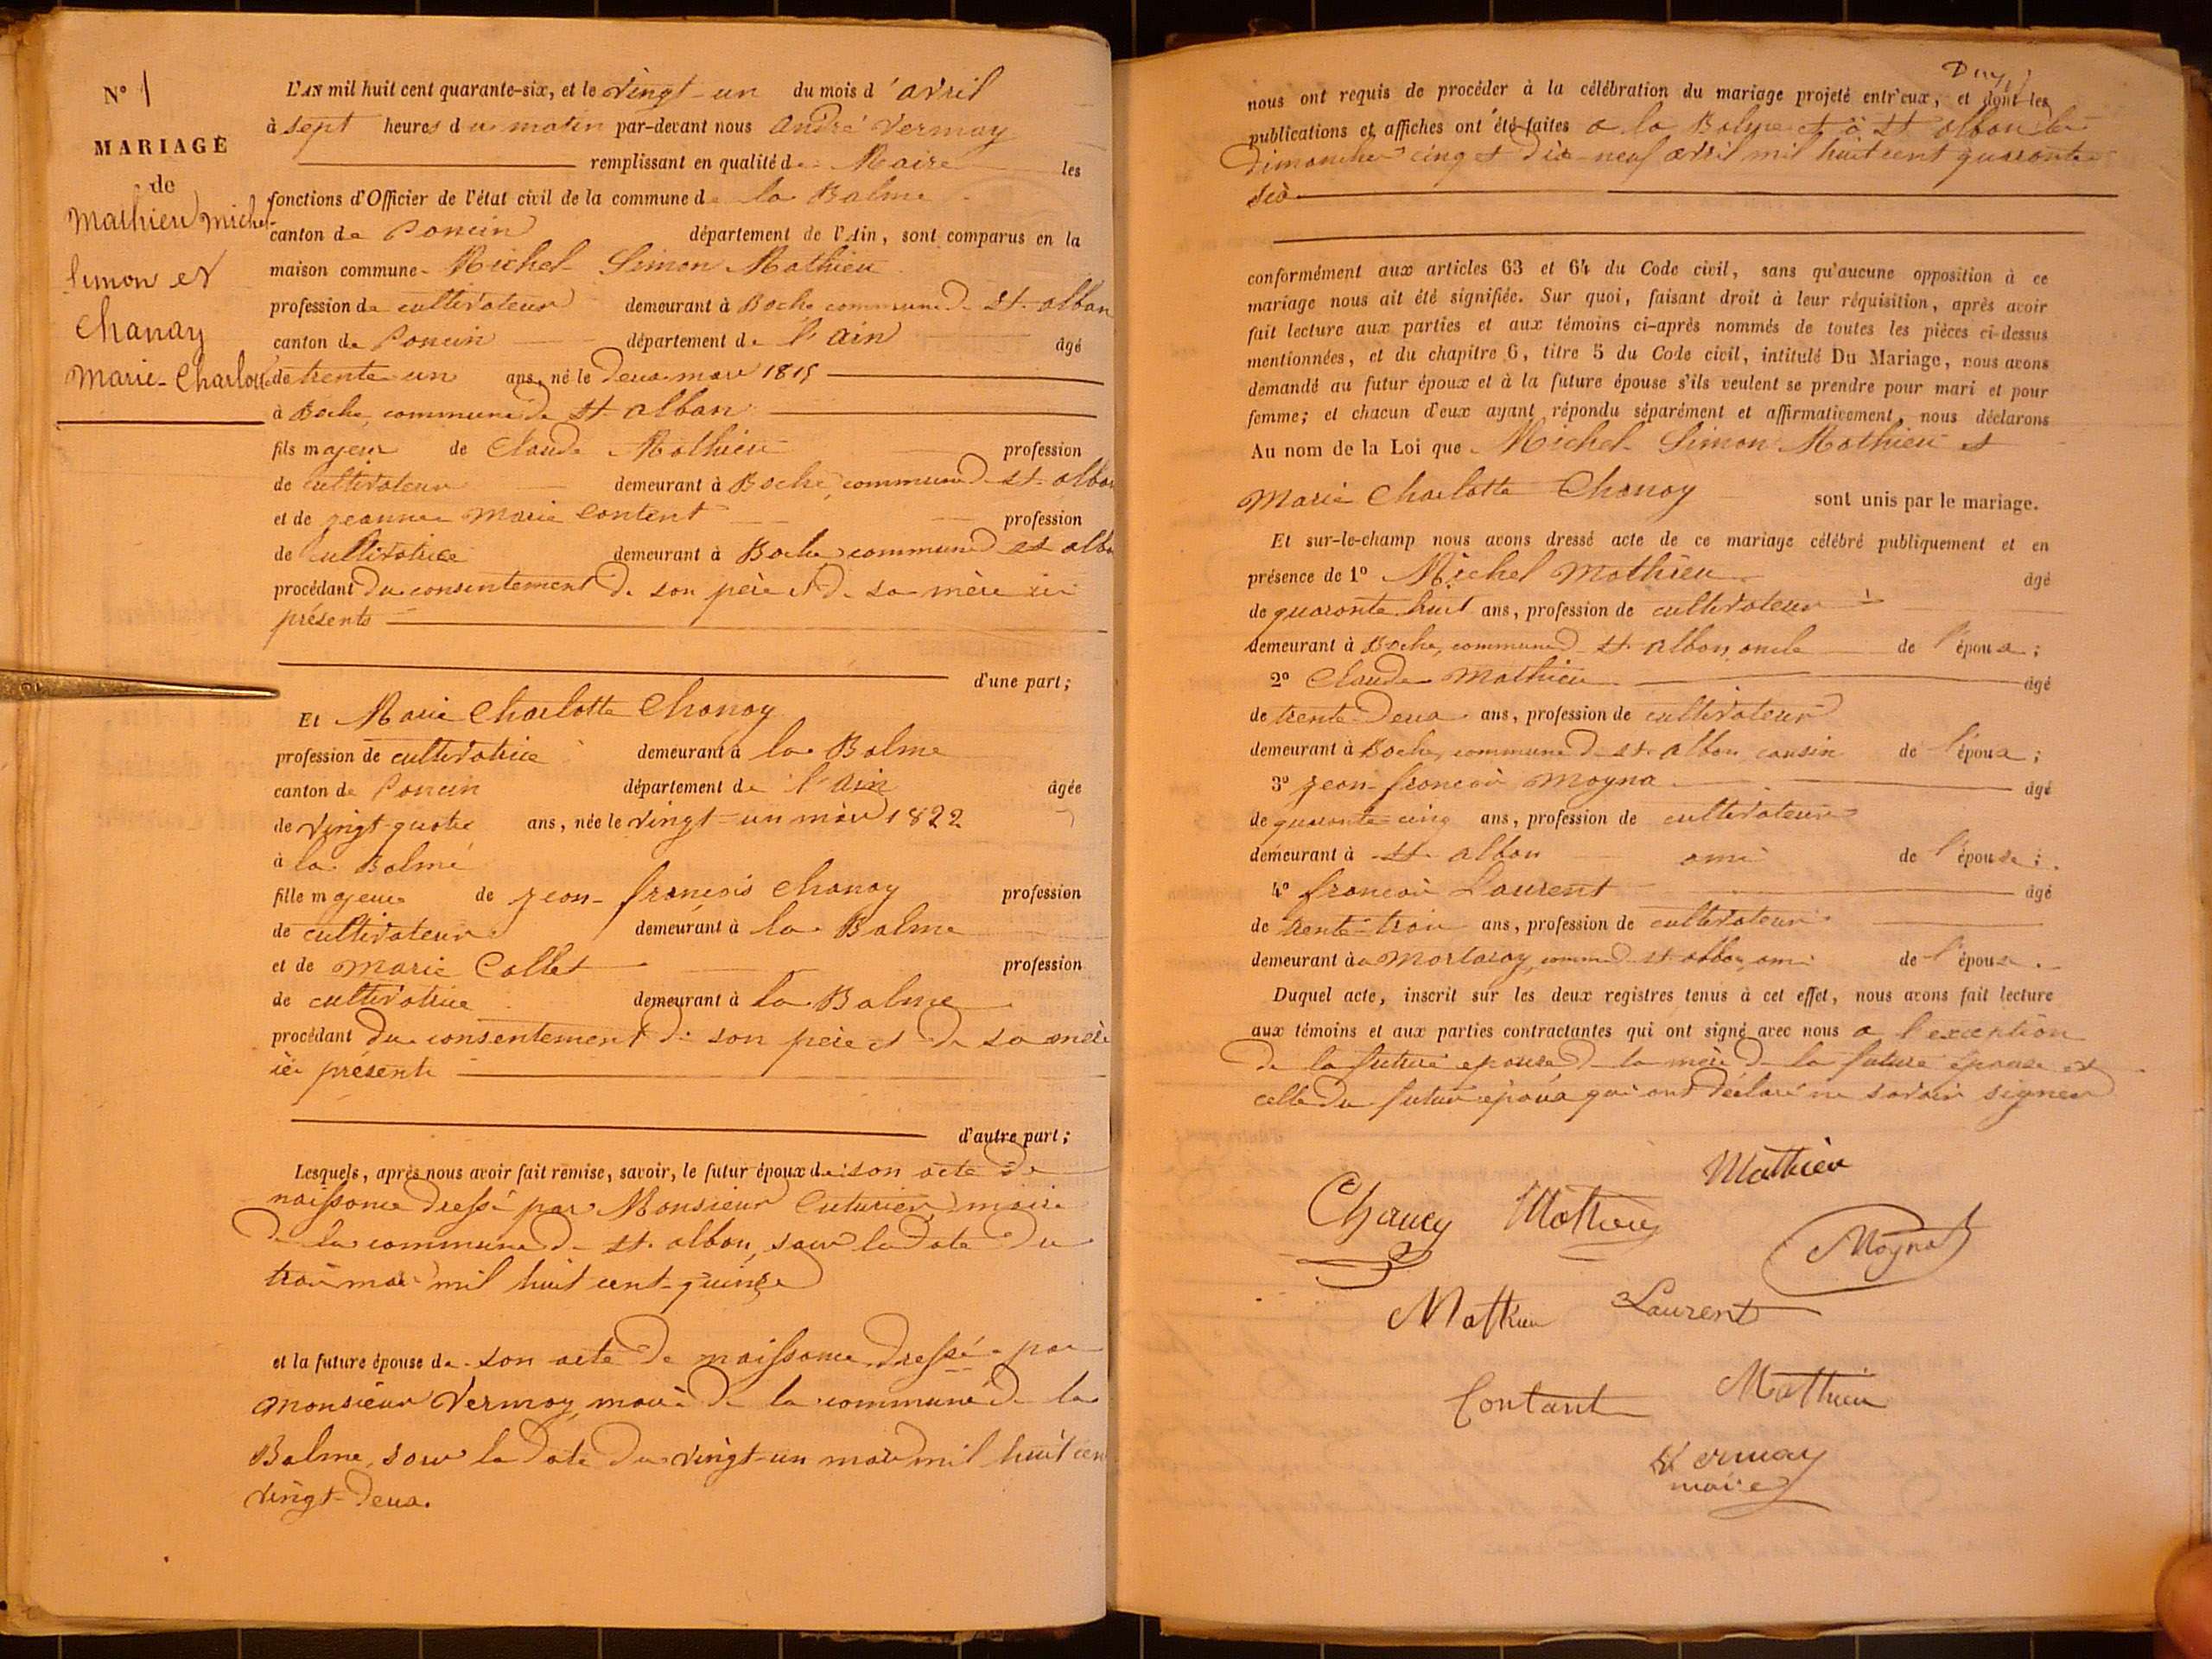 N° 1
MARIAGE
de
Mathieu Michel
Simon et
Chanay
Marie-Charlotte
L'AN mil huit cent quarante-six, et le vingt-un du mois d'avril
à sept heures du matin par-devant nous André Vermay
remplissant en qualité de Maire les
fonctions d'Officier de l'état civil de la commune de la Balme
canton de Poncin département de l'Ain, sont comparus en la
maison commune Michel Simon Mathieu
profession de cultivateur demeurant à Boche commune de St. alban
canton de Poncin département de l'ain âgé
de trente un ans, né le deux mars 1815
à Boche, commune de St alban
fils majeur de Claude Mathieu profession
de cultivateur demeurant à Boche, commune de St. alban
et de jeanne marie Content profession
de cultivatrice demeurant à Boche commune de St alban
procédant du consentement de son père et de sa mère ici
présents
d'une part;
Et Marie Charlotte Chanay
profession de cultivatrice demeurant à la Balme
canton de Poncin département de l'ain âgée
de vingt-quatre ans, née le vingt-un mars 1822
à la Balme
fille majeure de jean-françois Chanay profession
de cultivateur demeurant à la Balme
et de marie Collet profession
de cultivatrice demeurant à la Balme
procédant du consentement de son père et de sa mère
ici présents
d'autre part;
Lesquels, après nous avoir fait remise, savoir, le futur époux de son acte de
naissance dressé par Monsieur Cuturier, maire
de la commune de St. alban, sous la date du
trois mars mil huit cent-quinze
et la future épouse de son acte de naissance dressé par
monsieur Vermay, maire de la commune de la
Balme, sous la date du vingt-un mars mil huit cent
vingt-deux.
nous ont requis de procéder à la célébration du mariage projeté entr'eux, et dont les
publications et affiches ont été faites a la Balme et à St alban les
dimanches cinq et dix-neuf avril mil huit cent quarante
six
conformément aux articles 63 et 64 du Code civil, sans qu'aucune opposition à ce
mariage nous ait été signifiée. Sur quoi, faisant droit à leur réquisition, après avoir
fait lecture aux parties et aux témoins ci-après nommés de toutes les pièces ci-dessus
mentionnées, et du chapitre 6, titre 5 du Code civil, intitulé Du Mariage, nous avons
demandé au futur époux et à la future épouse s'ils veulent se prendre pour mari et pour
femme; et chacun d'eux ayant répondu séparément et affirmativement, nous déclarons
Au nom de la Loi que Michel Simon Mathieu et
Marie Charlotte Chanay sont unis par le mariage.
Et sur-le-champ nous avons dressé acte de ce mariage célébré publiquement et en
présence de 1° Michel Mathieu âgé
de quarante huit ans, profession de cultivateur
demeurant à Boche, commune de St. alban oncle de l'époux;
2° Claude Mathieu âgé
de trente-deux ans, profession de cultivateur
demeurant à Boche, commune de St alban cousin de l'époux;
3° jean-françois Moyna âgé
de quarante cinq ans, profession de cultivateur
demeurant à St. alban ami de l'épouse;
4° françois Laurent âgé
de trente-trois ans, profession de cultivateur
demeurant à Mortaray, commune St alban, ami de l'épouse.
Duquel acte, inscrit sur les deux registres tenus à cet effet, nous avons fait lecture
aux témoins et aux parties contractantes qui ont signé avec nous a l'exception
de la future epouse, de la mère de la future épouse et
celle du futur époux qui ont déclaré ne savoir signer
Mathieu
Chaney Mathieu
Moynat
Mathieu Laurent
Contant Mathieu
Vermay
maire